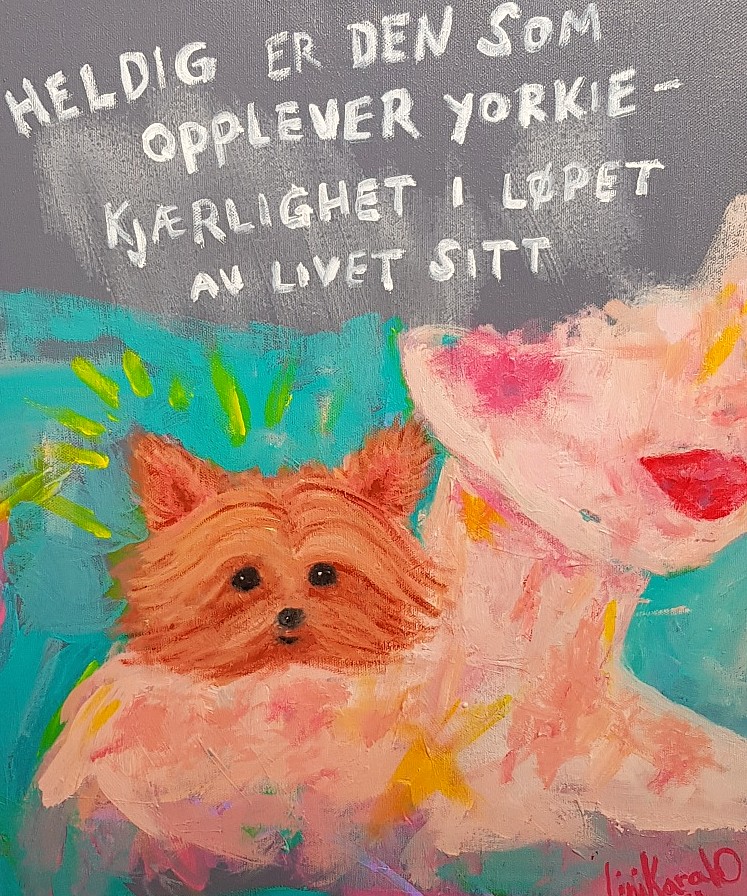 HELDIG ER DEN SOM
OPPLEVER YORKIE-
KJÆRLIGHET I LØPET
AV LIVET SITT